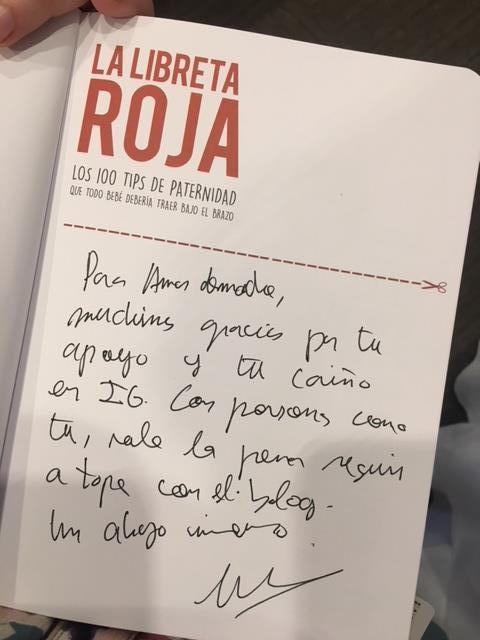 LA LIBRETA
ROJA
LOS 100 TIPS DE PATERNIDAD
QUE TODO BEBÉ DEBERÍA TRAER BAJO EL BRAZO
Para
muchas gracias por tu
apoyo y tu cariño
en IG. Con personas como
tu, vale la pena seguir
a tope con el blog.
Un abrazo inmenso